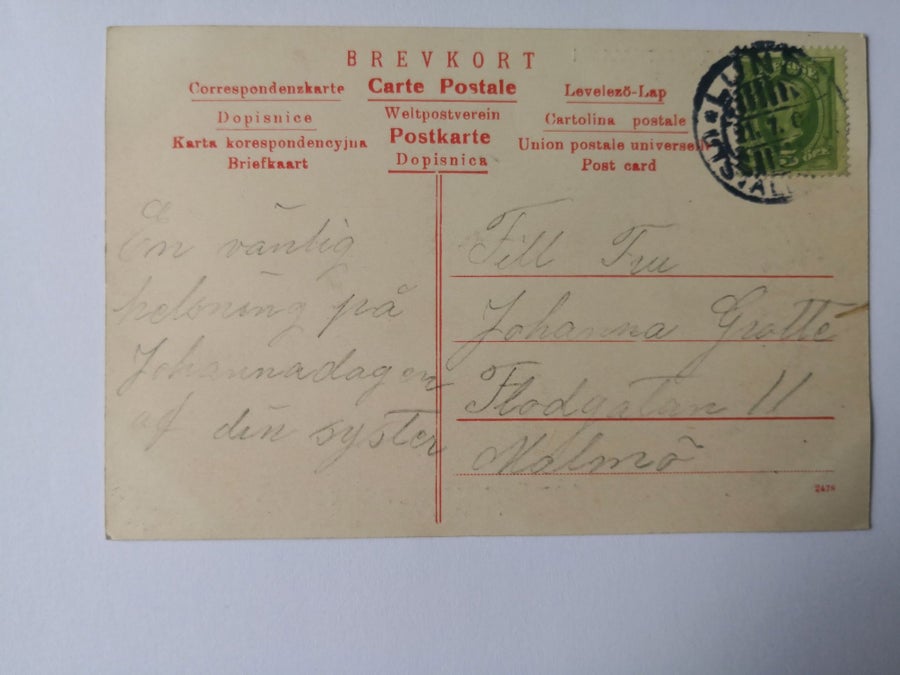 BREVKORT
Correspondenzkarte Carte Postale Levelező-Lap
Dopisnice Weltpostverein Cartolina postale
Karta korespondencyjna Postkarte Union postale universelle
Briefkaart Dopisnica Post card
LUND
21. 7. 0
5 ÖRE
En vänlig
helsning på
Johannadagen
af din syster
Till Fru
Johanna Grotte
Flodgatan 11
Malmö
2478